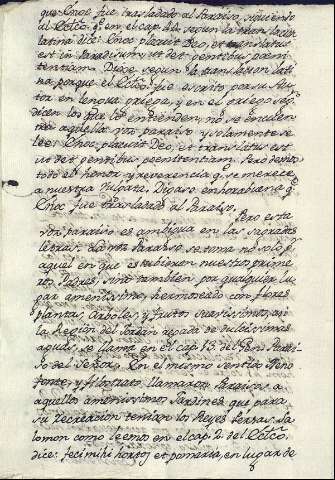 que Enoc fue trasladado al Paraiso, siguiendo
al Ecc.co q.e en el cap. 44. segun la translacion
latina dice: Enoc placuit Deo, et translatus
est in Paradisum, ut det gentibus poeni
tentiam. Dixe segun la translacion lati
na porque el Ecc.co fue escrito por su Au
tor en lengua griega, y en el griego seg.n
dicen los que lo entienden, no se encuen
tra aquella voz paraiso y solamente se
lee Enoc placuit Deo, et translatus est
ut det gentibus poenitentiam. Pero dando
todo el honor y reverencia q.e se merece
a nuestra Vulgata. Digase enhorabuena q.e
Enoc fue trasladado al Paraiso.
Pero esta
voz paraiso es ambigua en las sagradas
letras. La voz Paraiso se toma no solo p.r
aquel en que estubieron nuestros prime
ros Padres, sino tambien por qualquier lu
gar amenissimo, hermoseado con flores
plantas, Arboles, y frutos suavissimos, asi
la Region del Jordan regada de dulcissimas
aguas, se llama en el cap. 13. del Gen. Parai
so del Señor. En el mismo sentido Xeno
fonte, y Filostrato, llamaron Paraisos a
aquellos amenissimos Jardines que para
su recreacion tenian los Reyes Persas. Sa
lomon como leemos en el cap. 2. del Ecc.co
dice: feci mihi hortos et pomaria, en lugar de